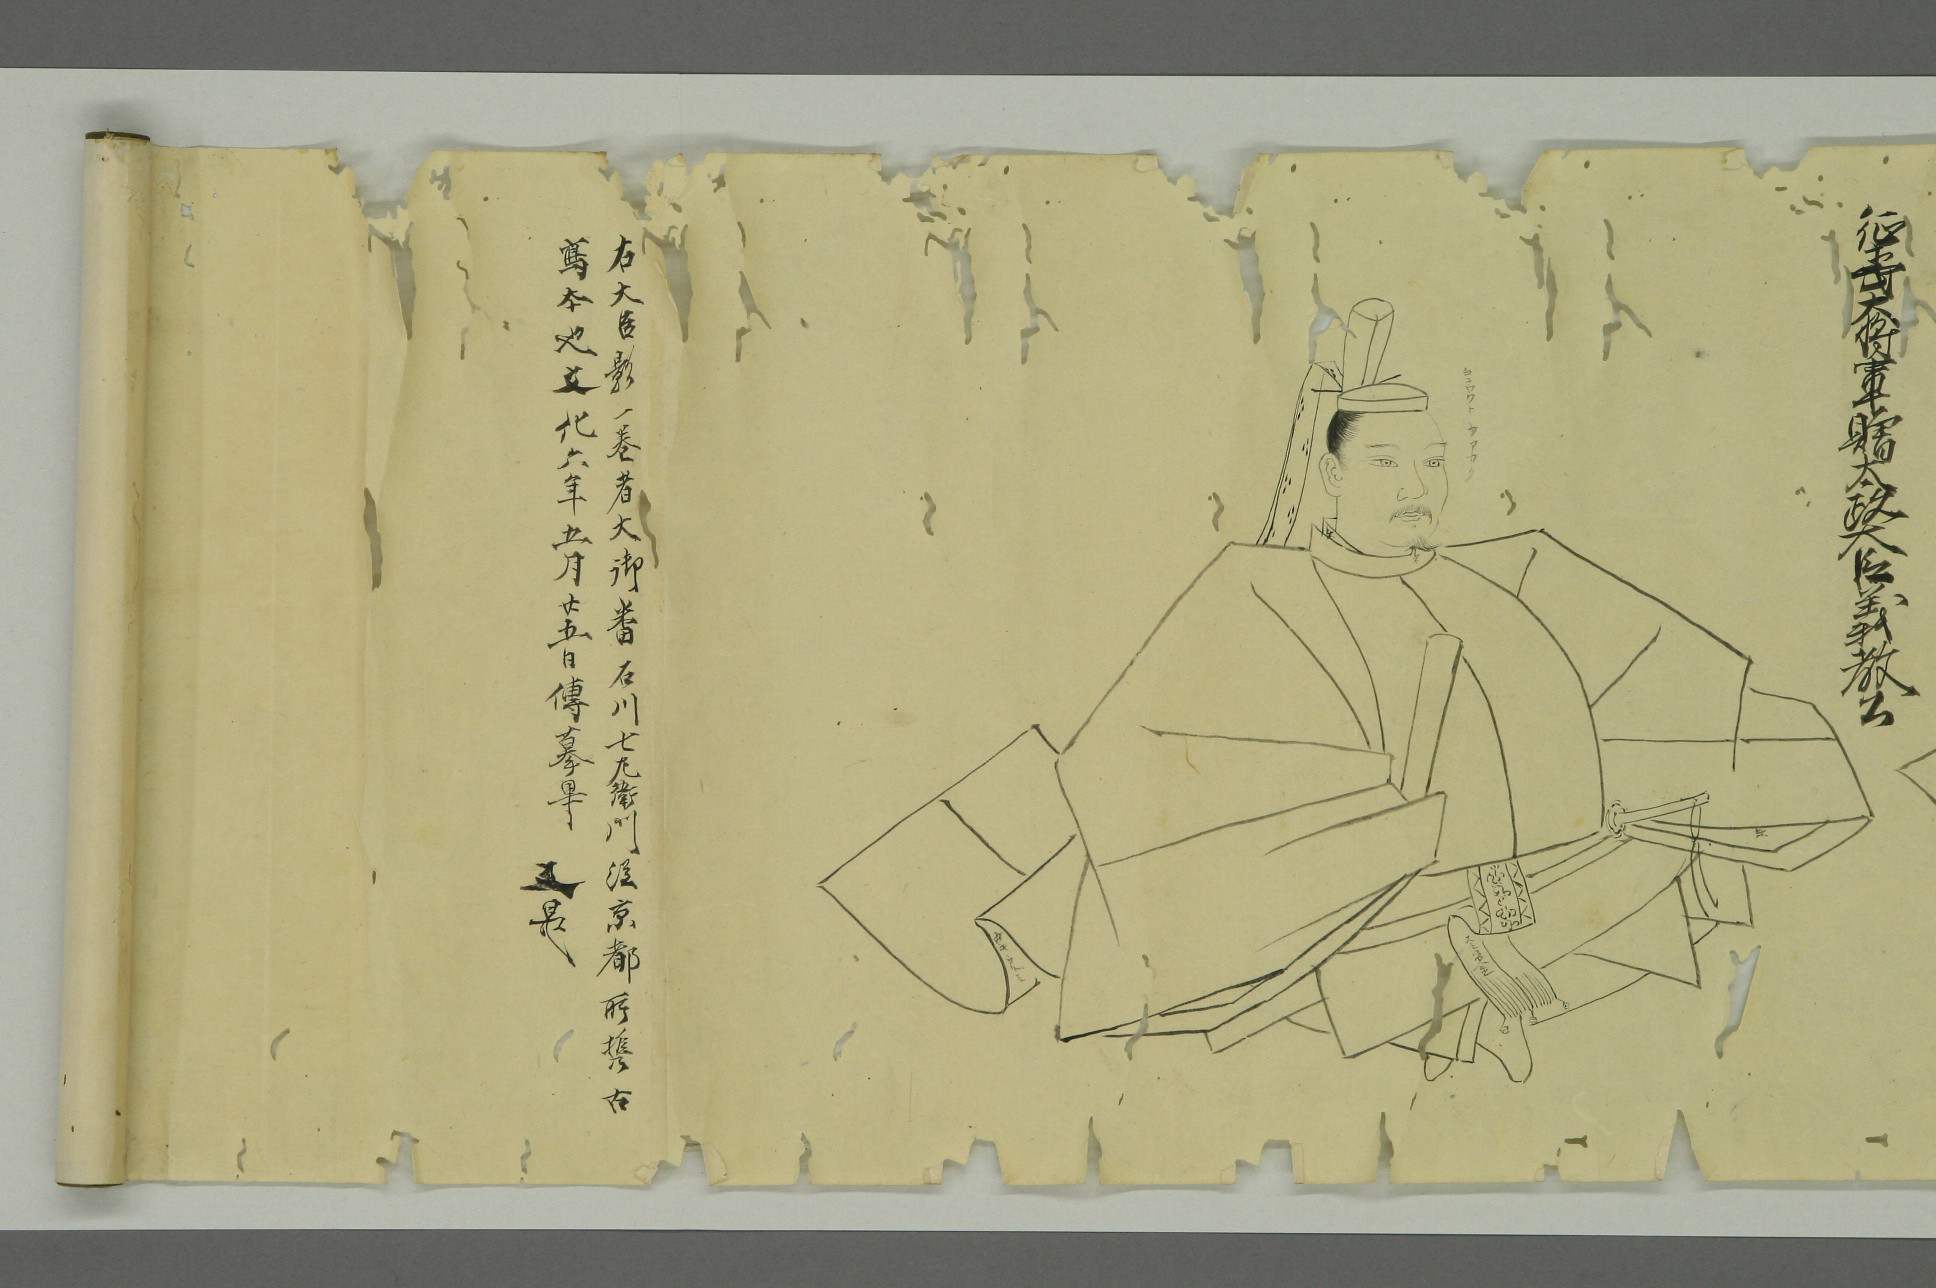 征夷大将軍贈太政大臣義教公
右大臣影一巻者大御番石川七左衛門従京都所携古
寫本也文化六年五月廿五日傳摹畢